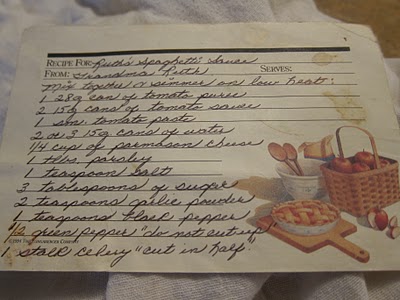 RECIPE FOR: Ruth's Spaghetti Sauce
FROM: Grandma Ruth SERVES:
Mix together & simmer on low heat:
1 28g can of tomato puree
2 15g cans of tomato sauce
1 sm. tomato paste
2 or 3 15g cans of water
1/4 cup of parmason cheese
1 tbls. parsley
1 teaspoon salt
3 tablespoons of sugar
2 teaspoons garlic powder
1 teaspoons black pepper
1/2 green pepper "do not cut up"
1 stalk celery "cut in half"